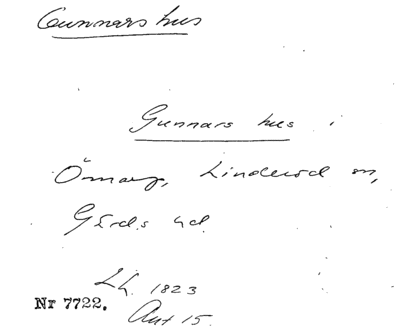 Gunnars hus
Gunnars hus i
Önnarp, Linderöd sn,
Gärds hd.
Lh. 1823
Nr 7722.
Ant 15.